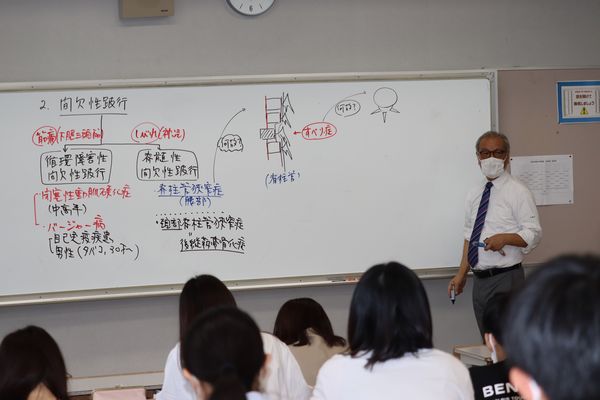 2. 間欠性跛行
筋痛(下腿三頭筋)
しびれ(神経)
循環障害性
間欠性跛行
脊髄性
間欠性跛行
・閉塞性動脈硬化症
(中高年)
・バージャー病
自己免疫疾患
男性(タバコ,
・脊柱管狭窄症
(腰部)
頚部脊柱管狭窄症
後縦靭帯骨化症
何故?
すべり症
何故?
(脊柱管)
BEN